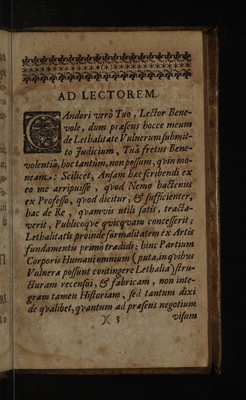 AD LECTOREM.
CAndori verò Tuo, Lector Bene-
vole, dum præsens hocce meum
de Lethalitate Vulnerum submit-
to Judicium, Tuâ fretus Bene-
volentiâ, hoc tantùm, non possum, qvin mo-
neam: Scilicet, Ansam hæc scribendi ex
eo me arripuisse, qvod Nemo hactenus
ex Professo, qvod dicitur, & sufficienter,
hac de Re, qvamvis utili satis, tracta-
verit, Publicoqve qvicqvam concesserit;
Lethalitatis proinde formalitatem ex Artis
fundamentis primò tradidi; hinc Partium
Corporis Humani omnium (puta, in qvibus
Vulnera possunt contingere Lethalia) stru-
cturam recensui, & fabricam, non inte-
gram tamen Historiam, sed tantum dixi
de qvalibet, qvantum ad præsens negotium
)( 3
visum